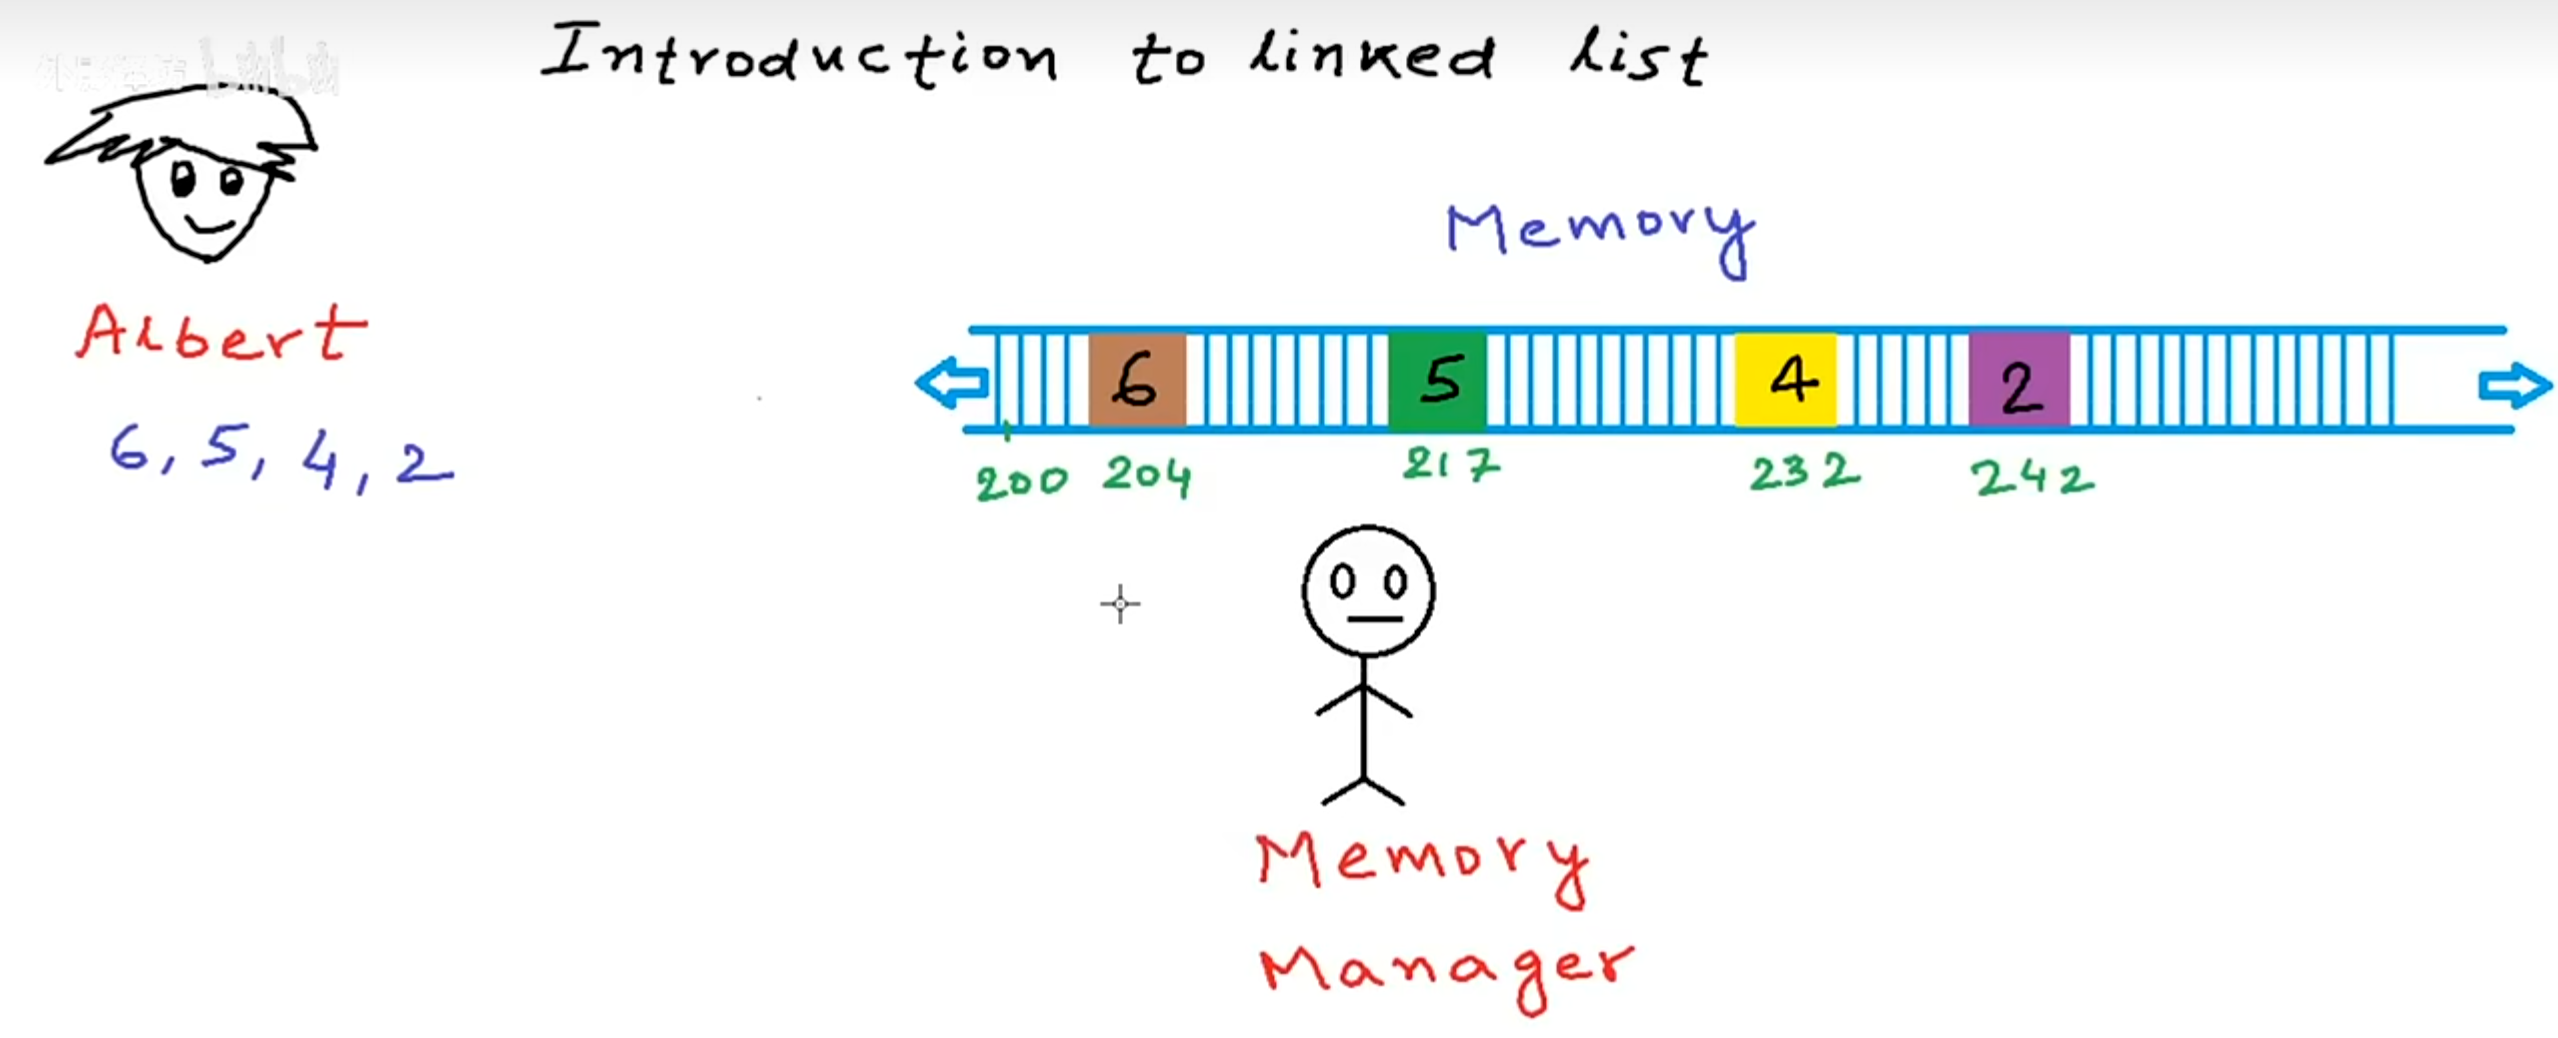 Introduction to linked list
Albert
6, 5, 4, 2
Memory
6 5 4 2
200 204 217 232 242
Memory
Manager